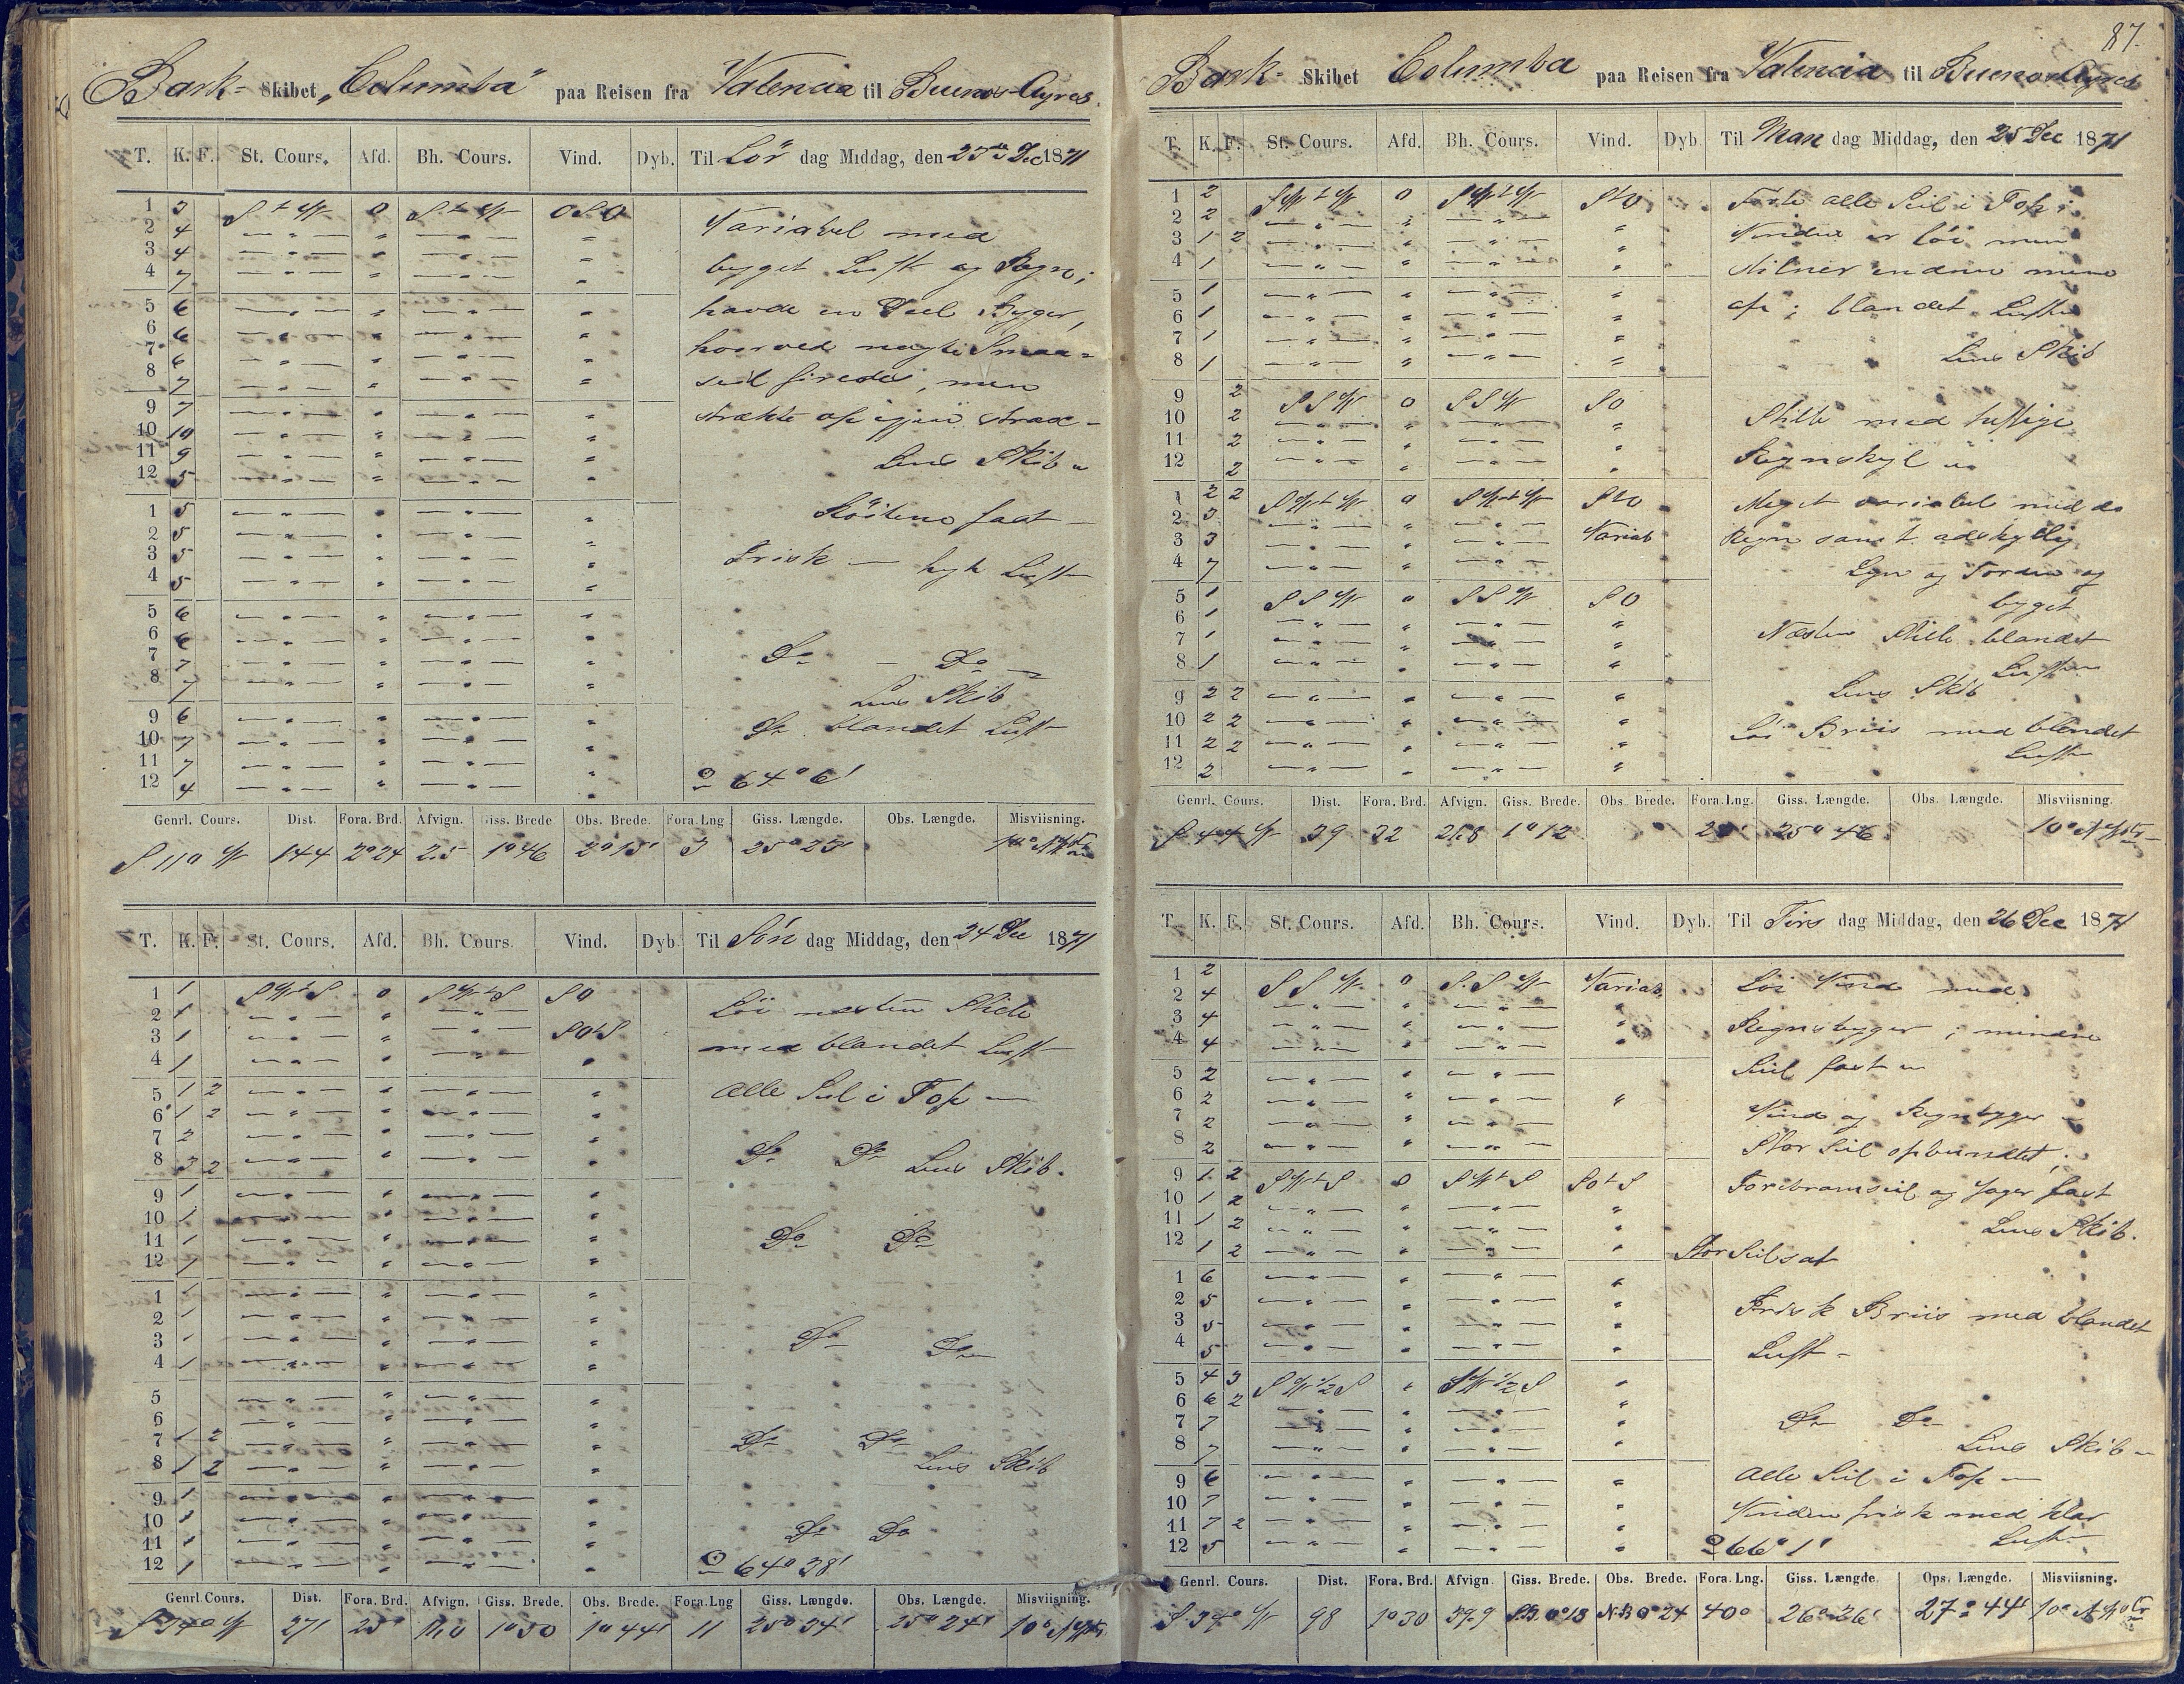 Bark- Skibet „Columba“ paa Reisen fra Valencia til Buenos-Ayres.
T. K. F. St. Cours. Afd. Bh. Cours. Vind. Dyb. Til Lör dag Middag, den 23de Dec 1871
1 3 S t W 0 S t W OSO
2 4
3 4
4 7
5 6
6 6
7 6
8 7
9 7
10 10
11 9
12 5
1 5
2 5
3 5
4 5
5 6
6 6
7 7
8 7
9 6
10 7
11 7
12 4
Variabel med
byget Luft og Regn;
havde en Deel Byger,
hvorved nogle Smaa-
seil firedes, men
strakte op igjen strax -
Lens Skib
Röilene fast -
Frisk — byk Luft
Do - Do
Lens Skib
Do blandet Luft
64° 6'
Genrl. Cours. Dist. Fora. Brd. Afvign. Giss. Brede Obs. Brede. Fora. Lng Giss. Længde. Obs. Længde. Misviisning.
S 11° W 144 2°24 2.5 1°46 2°15' 3 25°23'
T. K. F. St. Cours. Afd. Bh. Cours. Vind. Dyb. Til Sön dag Middag, den 24 Dec 1871
1 1 SWtS 0 SWtS SO
2 1
3 1 SOtS
4 1
5 1 2
6 1 2
7 2
8 3 2
9 1
10 1
11 1
12 1
1 1
2 1
3 1
4 1
5
6
7 1 2
8 1 2
9 1
10 1
11 1
12 1
Löi næsten Stille
med blandet Luft
Alle Seil i Top
Do Do Lens Skib.
Do Do
Do Do
Do Do
Lens Skib
Do Do
64° 38'
Genrl. Cours. Dist. Fora. Brd. Afvign. Giss. Brede. Obs. Brede. Fora. Lng Giss. Længde. Obs. Længde. Misviisning.
S 34° W 27 1°50 1°44' 11 25° 34' 25° 24'
87.
Bark- Skibet Columba paa Reisen fra Valencia til Buenos Ayres
T. K. F. St. Cours. Afd. Bh. Cours. Vind. Dyb Til Man dag Middag, den 25 Dec 1871
1 2 SWtW 0 SWtW StO
2 2
3 1 2
4 1
5 1
6 1
7 1
8 1
9 2 SSW 0 SSW SO
10 2
11 2
12 2
1 2 2 SWtW 0 SWtW StO
2 3
3 3 Variab
4 7
5 1 SSW SSW SO
6 1
7 1
8 1
9 2 2
10 2 2
11 2 2
12 2
Förte alle Seil i Top;
Vinden er löi men
stilner endnu mere
af; blandet Luft
Lens Skib
Stille med heftige
Regnskyl
Meget variabel med do
Regn samt adskyllig
Lyn og Torden og
byget
Næsten Stille blandet
Luft
Lens Skib
Löi Briis med blandet
Luft
Genrl. Cours. Dist. Fora. Brd. Afvign. Giss. Brede. Obs. Brede. Fora. Lng. Giss. Længde. Obs. Længde. Misviisning.
S 44 W 39 32 26.8 1°12 25° 46
T. K. F. St. Cours. Afd. Bh. Cours. Vind. Dyb. Til Tirs dag Middag, den 26 Dec 1871
1 2 SSW 0 S.SW Variab.
2 4
3 4
4 4
5 2
6 2
7 2
8 2
9 1 2 SWtS 0 SWtS SOtS
10 1 2
11 1 2
12 1 2
1 6
2 5
3 5
4 5
5 4 3 SW½S SW½S
6 6 2
7 7
8 7
9 6
10 7
11 7 2
12 5
Löi Vind med
Regnsbyger; mindre
Seil fast
Vind og Regnbyger
Stor Seil opbundtet;
Forebramseil og Jager fast
Lens Skib.
Stor Seil sat
Frisk Briis med blandet
Luft -
Do Do
Lens Skib
Alle Seil i Top
Vinden frisk med klar
Luft
66° 1'
Genrl. Cours. Dist. Fora. Brd. Afvign. Giss. Brede. Obs. Brede. Fora. Lng. Giss. Længde Ops. Længde. Misviisning.
98 1°30 S.B. 0°18 N.B 0°24 40° 26° 26' 27° 44'